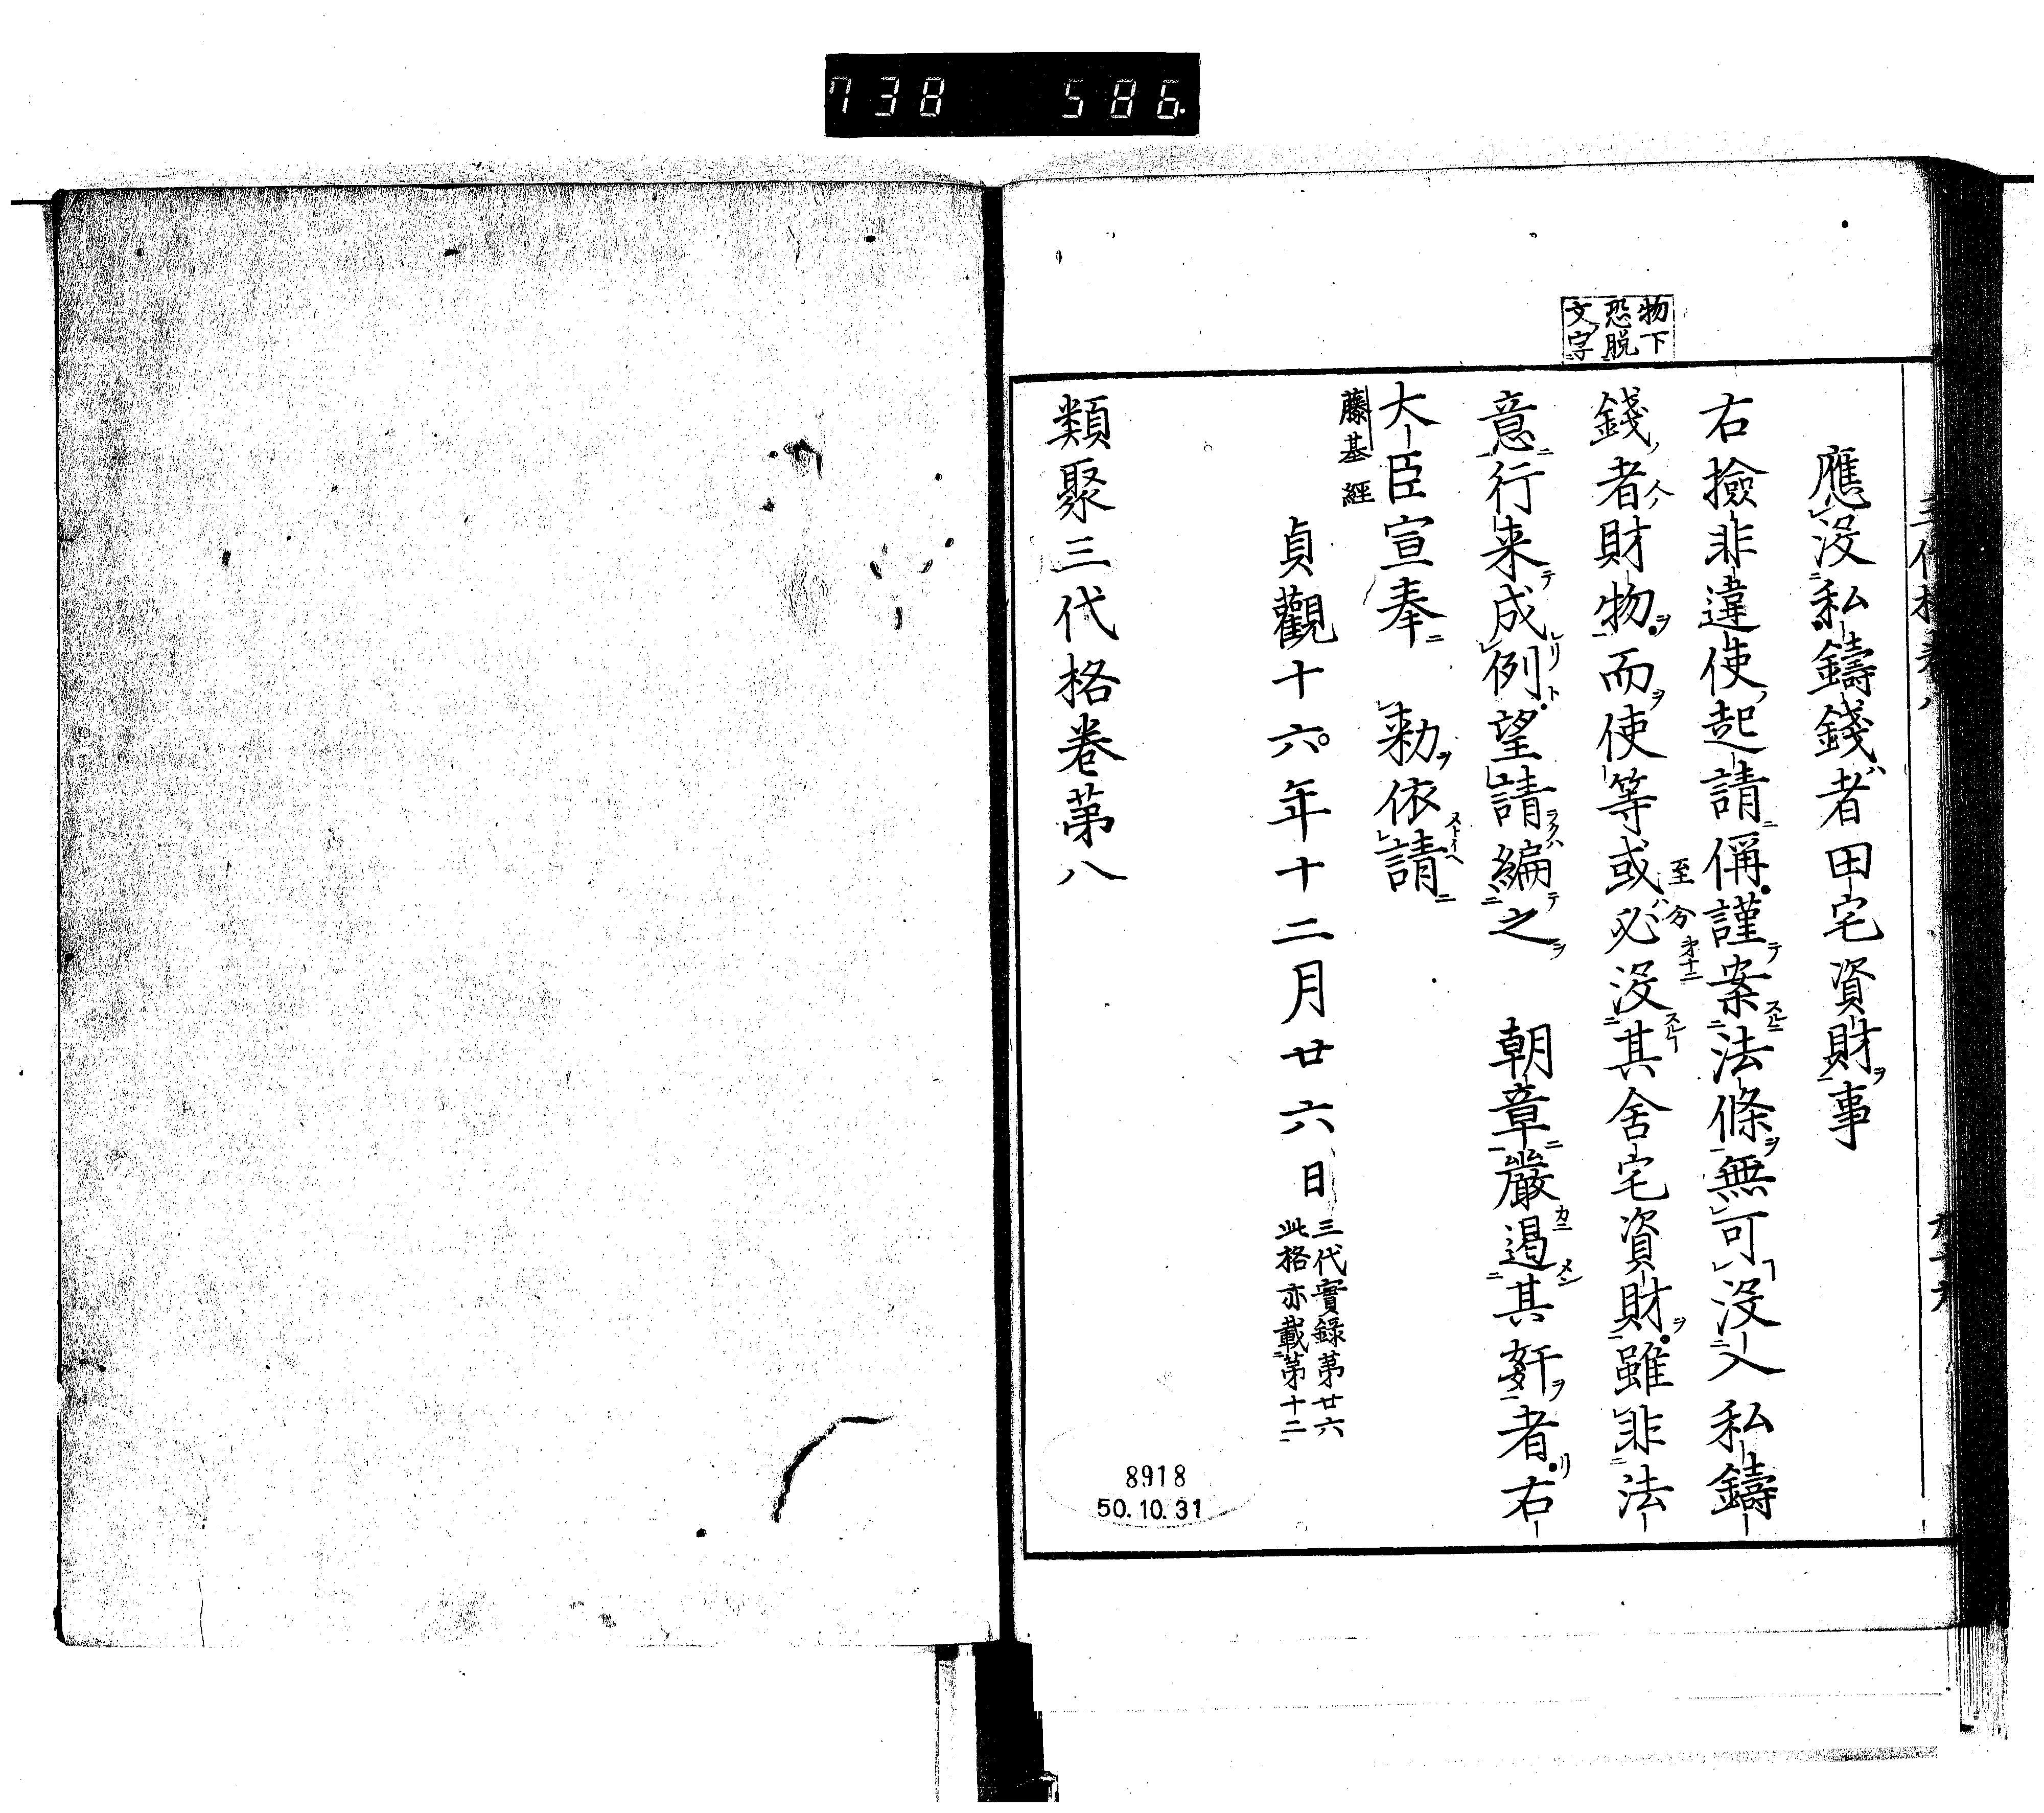 738 586.
物下
恐脱
文字
應没私鑄錢者田宅資財事
右撿非違使起請偁謹案法條無可没入私鑄
錢者財物而使等或必没其舍宅資財雖非法
至分 第十二
意行来成例望請編之 朝章嚴遏其姧者右
大臣宣奉 勅依請
藤基經
貞觀十六年十二月廿六日
三代實錄第廿六
此格亦載第十二
類聚三代格卷第八
8918
50.10.31